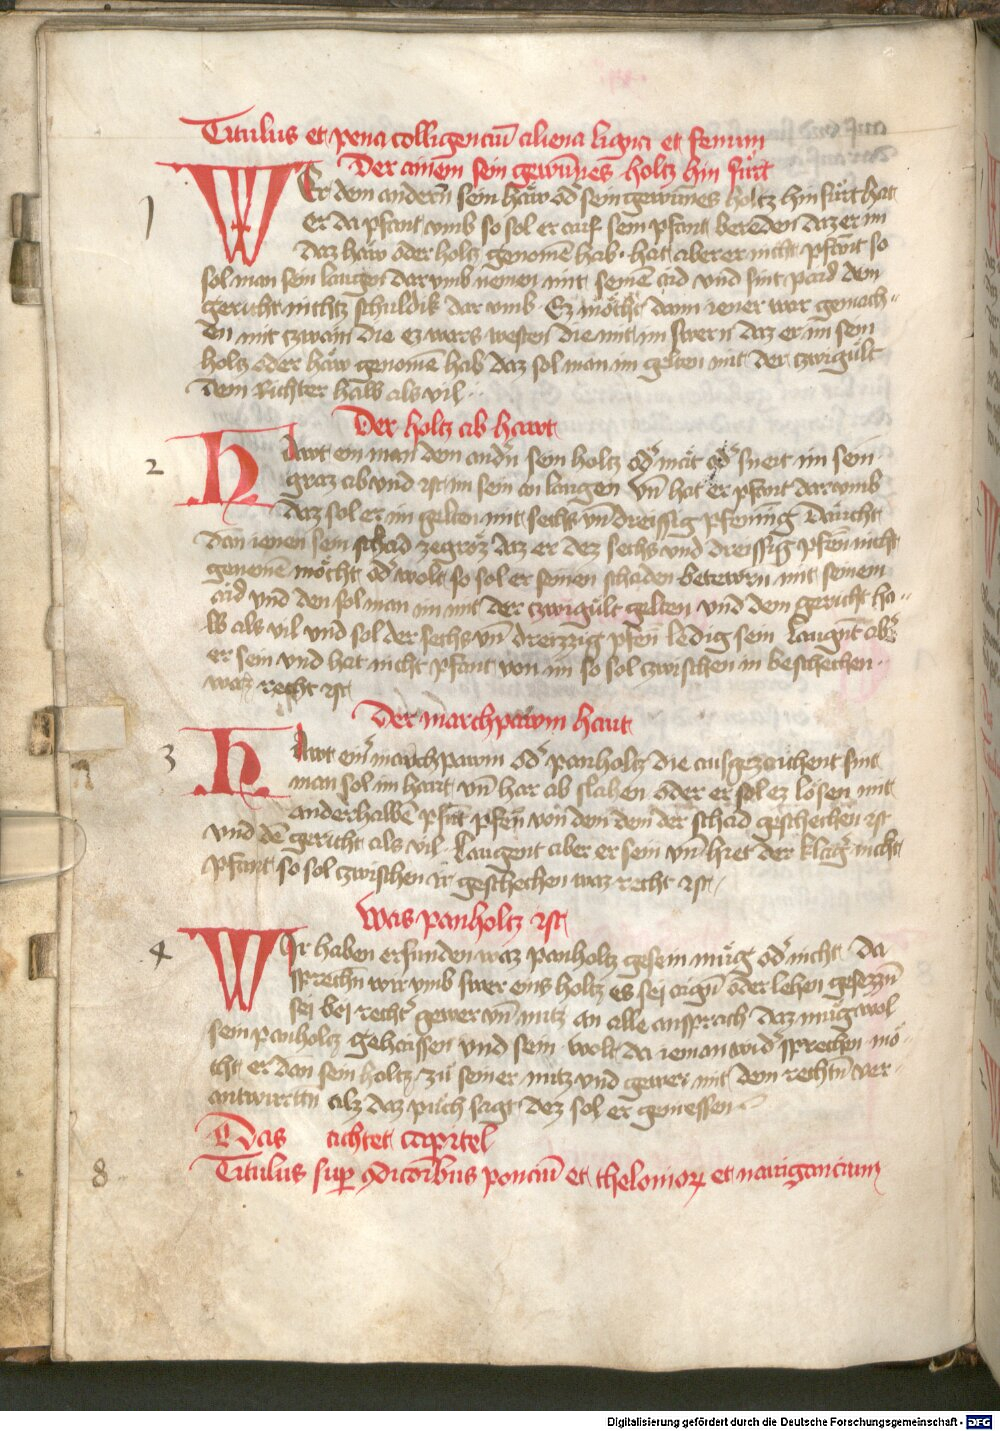 Titulus et pena colligenciū aliena ligna et fenum
Der ainem sein gewūnēs holtz hin fürt
1
Wer dem andern̄ sein häw od̓ sein gewūnes holtz hin fürt hat
er da pfant umb so sol er auf sem pfant bereden daz er im
daz häw oder holtz genomē hab · hat aber er nicht pfant so
sol man sein laugen dar vmb nemen mit seinē aid vnd sint paid dem
gericht nichtz schuldik dar vmb · Ez möcht dann iener war gemach-
en mit czwain die ez wars westen die mit im swern daz er im sein
holtz oder häw genomē hab daz sol man im gelten mit der czwigült
dem Richter halb als vil ·
Der holtz ab hawt
2
Hawt ein man dem and̓n sein holtz od̓ mät od̓ sneit im sein
graz ab vnd ist im sein an laugen vn̄ hat er pfant dar vmb
daz sol er im gelten mit sechs vn̄ dreissig pfening Däucht
dan ienen sein schad ze groz daz er dez sechs vnd dreissig pfen̄ nicht
genemē möcht od̓ wolt so sol er seinen schaden betewrn mit seinem
aid vnd den sol man im mit der czwigült gelten vnd dem gericht ha-
lb als vil vnd sol der sechs vn̄ dreizzig pfen̄ ledig sein Laugēt ab̓
er sein vnd hat nicht pfant von im so sol czwischen in beschechen
waz recht ist
Der marchpawm hawt
3
Hawt ein̓ marchpawm od̓ panholtz die ausgezaichent sint
man sol im hawt vn̄ har ab slahen oder er sol ez lösen mit
anderhalbē pfūt pfen̄ von dem dem der schad geschechen ist
vnd dē gericht als vil · Laugent aber er sein vn̄ hiet der klag̓ nicht
pfant so sol czwischen ir geschechen waz recht ist
Was panholtz ist
4
Wir haben erfunden waz panholtz gesein müg od̓ nicht · Da
sprechn̄ wir vmb swer eins holtz es sei aign̄ oder lehen gesezzn̄
sei bei recht̓ gewer vn̄ nutz an alle ansprach daz müg wol
sein panholtz gehaissen vnd sein · wolt da ieman wid̓ sprechen mö-
cht er dan sein holtz zu seiner nutz vnd gewer mit dem rechtn̄ ver-
antwurttn̄ alz daz puch sagt dez sol er geniessen
Das achtet capitel
8
Titulus sup ꝯdic̄oībus ponciū et thelonioꝝ et nauiganciumꝫ
Digitalisierung gefördert durch die Deutsche Forschungsgemeinschaft - DFG